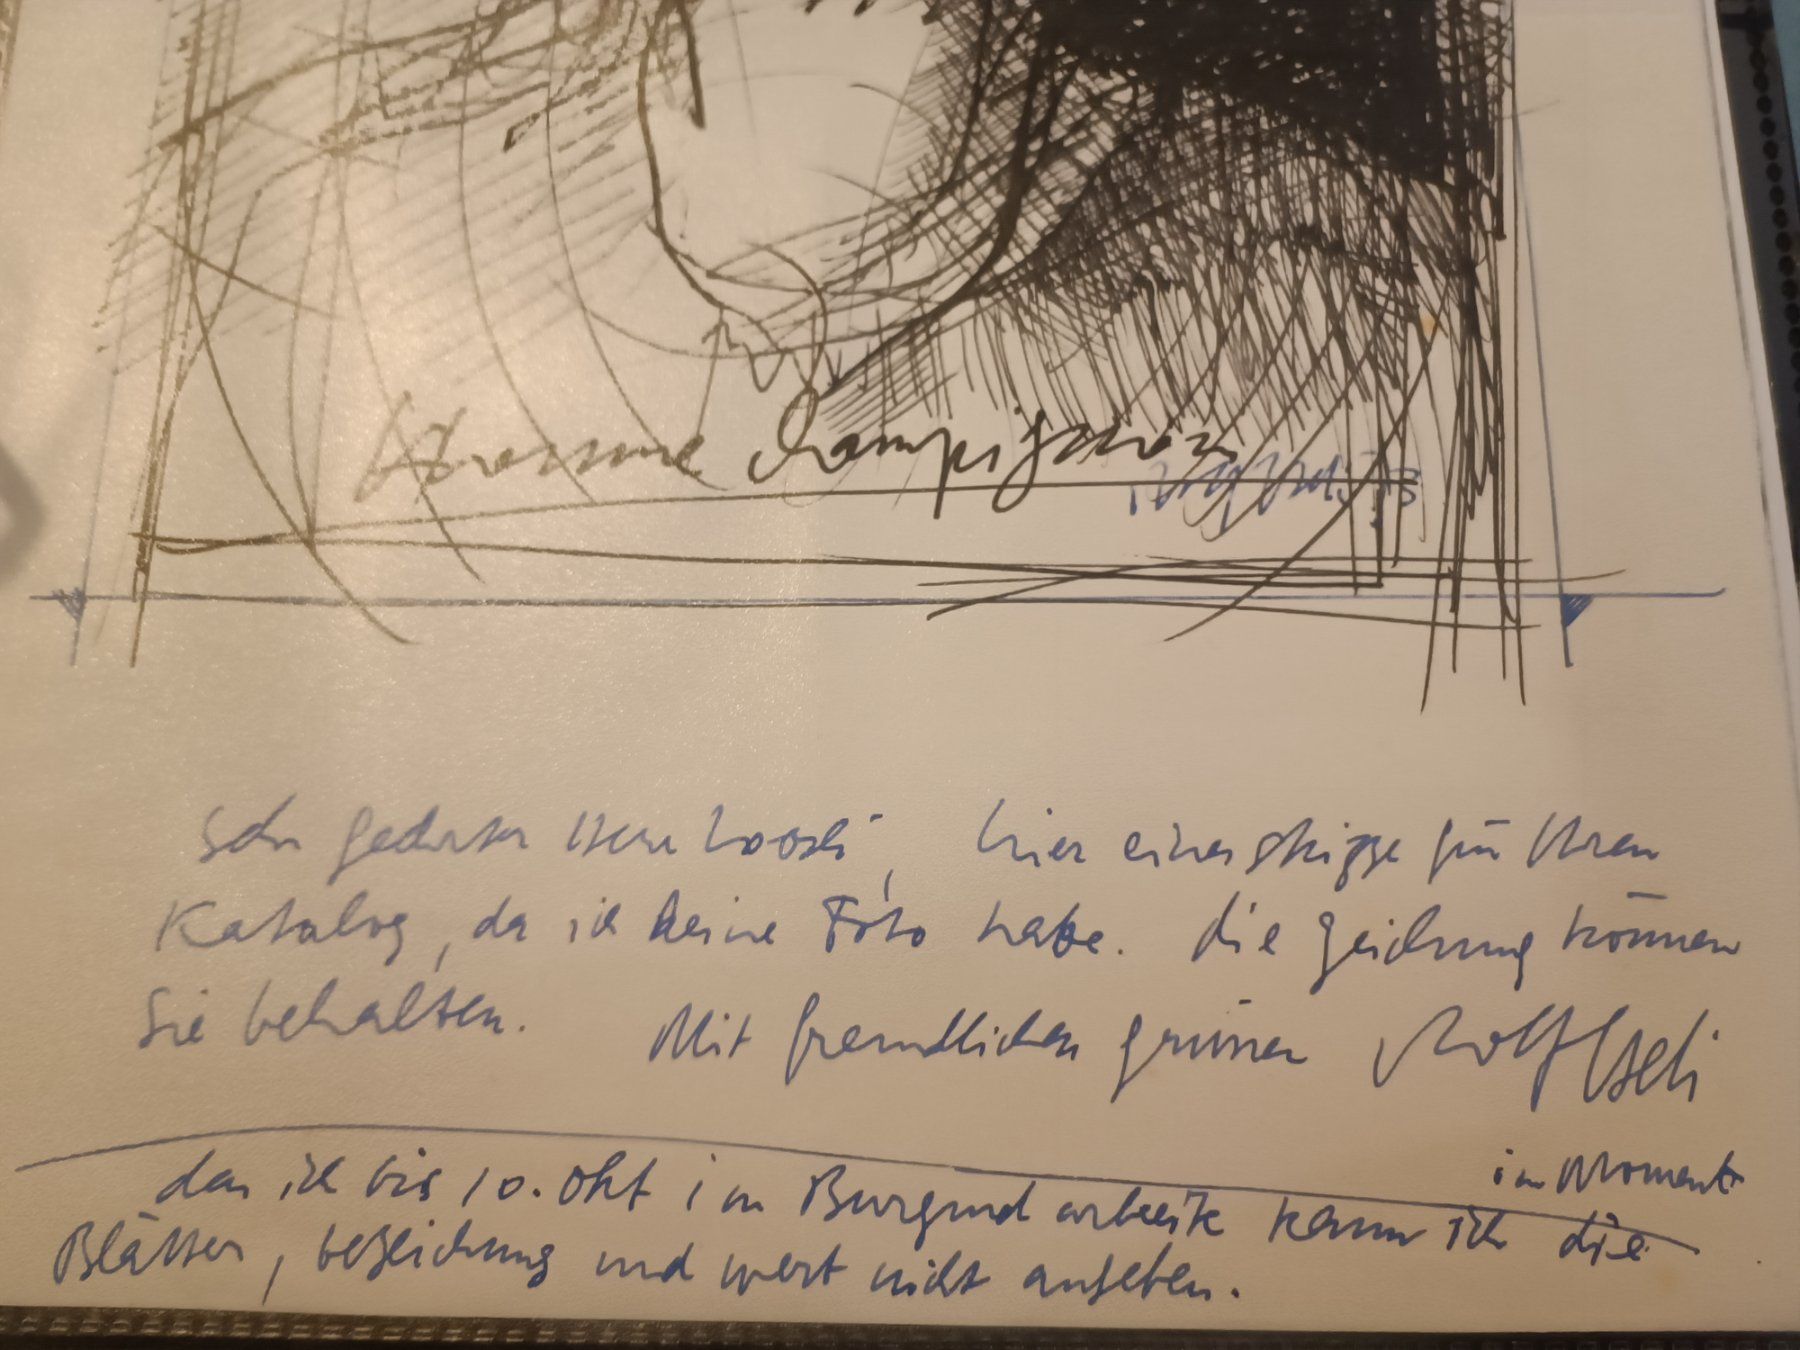 champignon
Sehr geehrter Herr Loosli, hier eine Skizze für Ihren
Katalog, da ich keine Foto habe. die Zeichnung können
Sie behalten. Mit freundlichen grüssen Rolf Iseli
im Moment
da ich bis 10. Okt im Burgund arbeite kann ich die
Blätter, bezeichnung und wert nicht angeben.